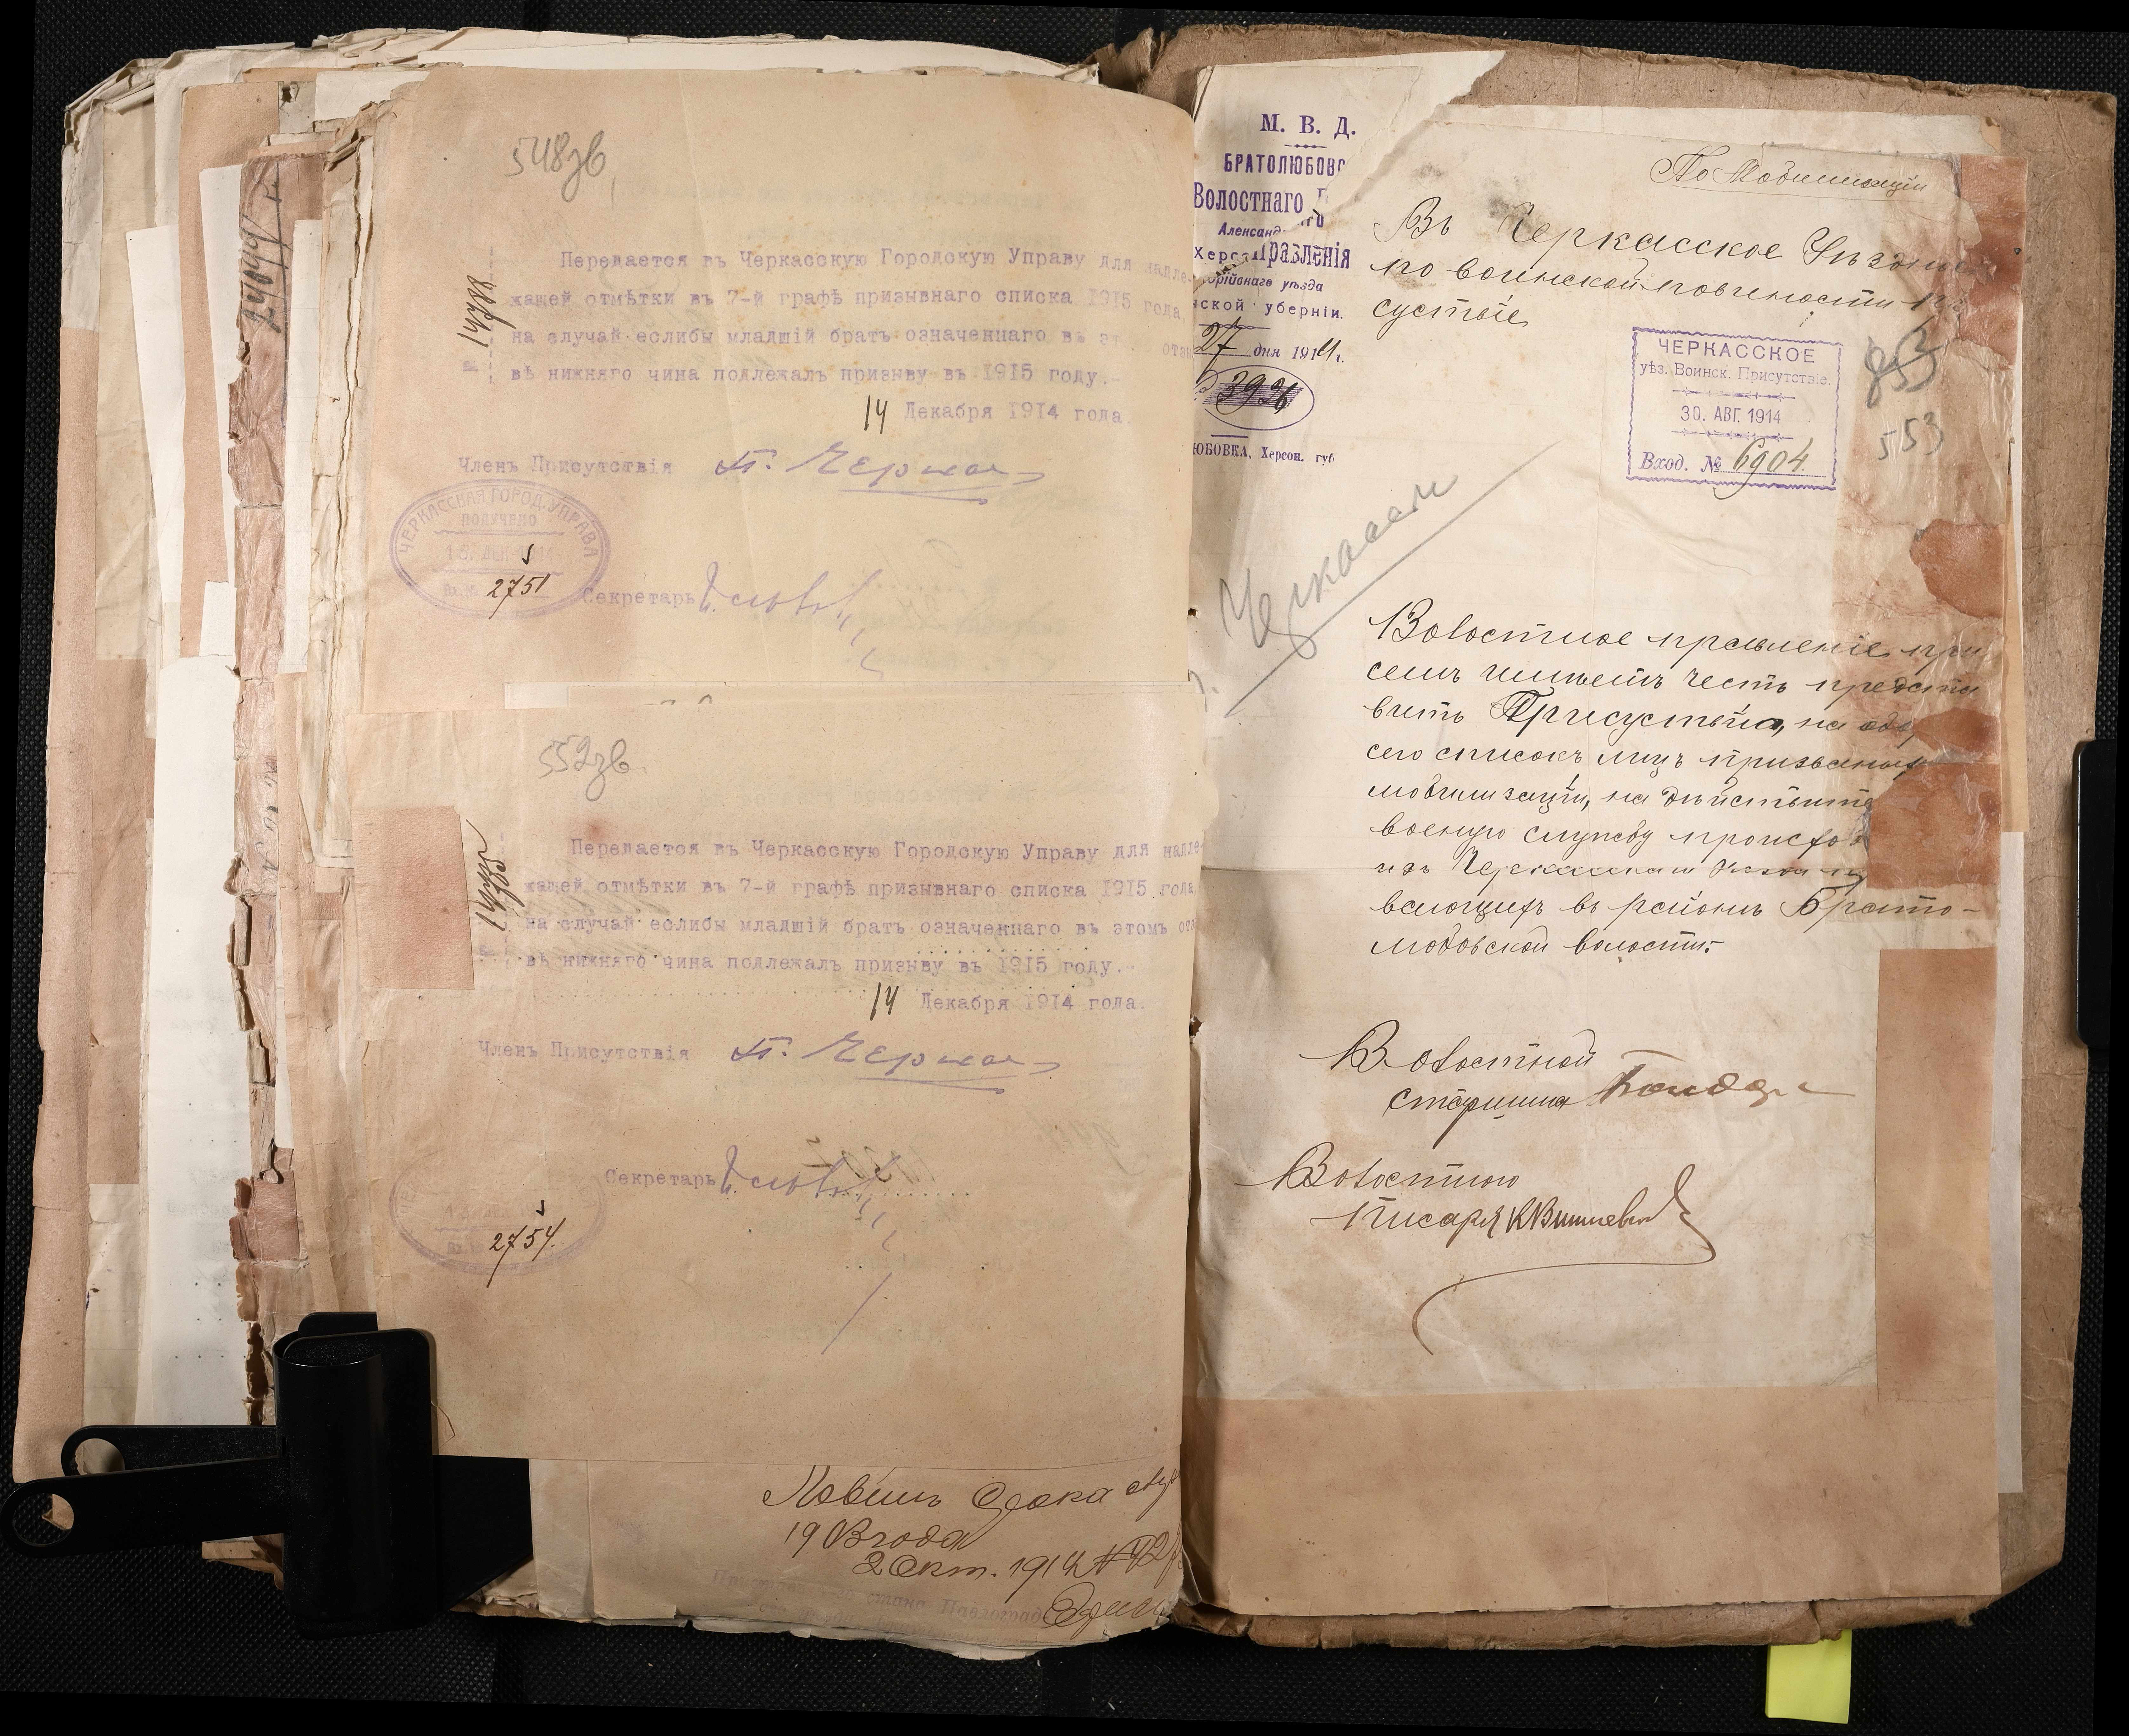 548зв
Передается въ Черкасскую Городскую Управу для надле-
жащей отмѣтки въ 7-й графѣ призывнаго списка 1915 года
на случай еслибы младшій братъ означеннаго въ эт отзы
вѣ нижняго чина подлежалъ призыву въ 1915 году.-
14 Декабря 1914 года.
Членъ Присутствія
ЧЕРКАССКАЯ ГОРОД. УПРАВА
ПОЛУЧЕНО
2751
Секретарь
552зв.
Передается въ Черкасскую Городскую Управу для надле-
жащей отмѣтки въ 7-й графѣ призывнаго списка 1915 года
на случай еслибы младшій братъ означеннаго въ этомъ отзы
вѣ нижняго чина подлежалъ призыву въ 1915 году.-
14 Декабря 1914 года.
Членъ Присутствія
Секретарь
2754.
2 Окт. 1914
стана Павлоград
М. В. Д.
БРАТОЛЮБОВС
Волостного
Александ
Херс правленія
рійскаго уѣзда
нской губерніи.
27 дня 1914 г.
3926
ЮБОВКА, Херсон. губ
Черкассы
По Мобилизаціи
Въ Черкасское Уѣздное
по воинской повинности При
сутствіе
ЧЕРКАССКОЕ
уѣз. Воинск. Присутствіе.
30. АВГ. 1914
Вход. № 6904
553
Волостное правленіе при
семъ имѣетъ честь предста
вить Присутствію, на обор
сего списокъ лицъ призваных
мобилизаціи, на дѣйствите
военую службу происход
изъ Черкасскаго Уѣзда
вающихъ въ районѣ Брато-
любовской волости.-
Волостной
старшина
Волостного
Писаря К Вишневск